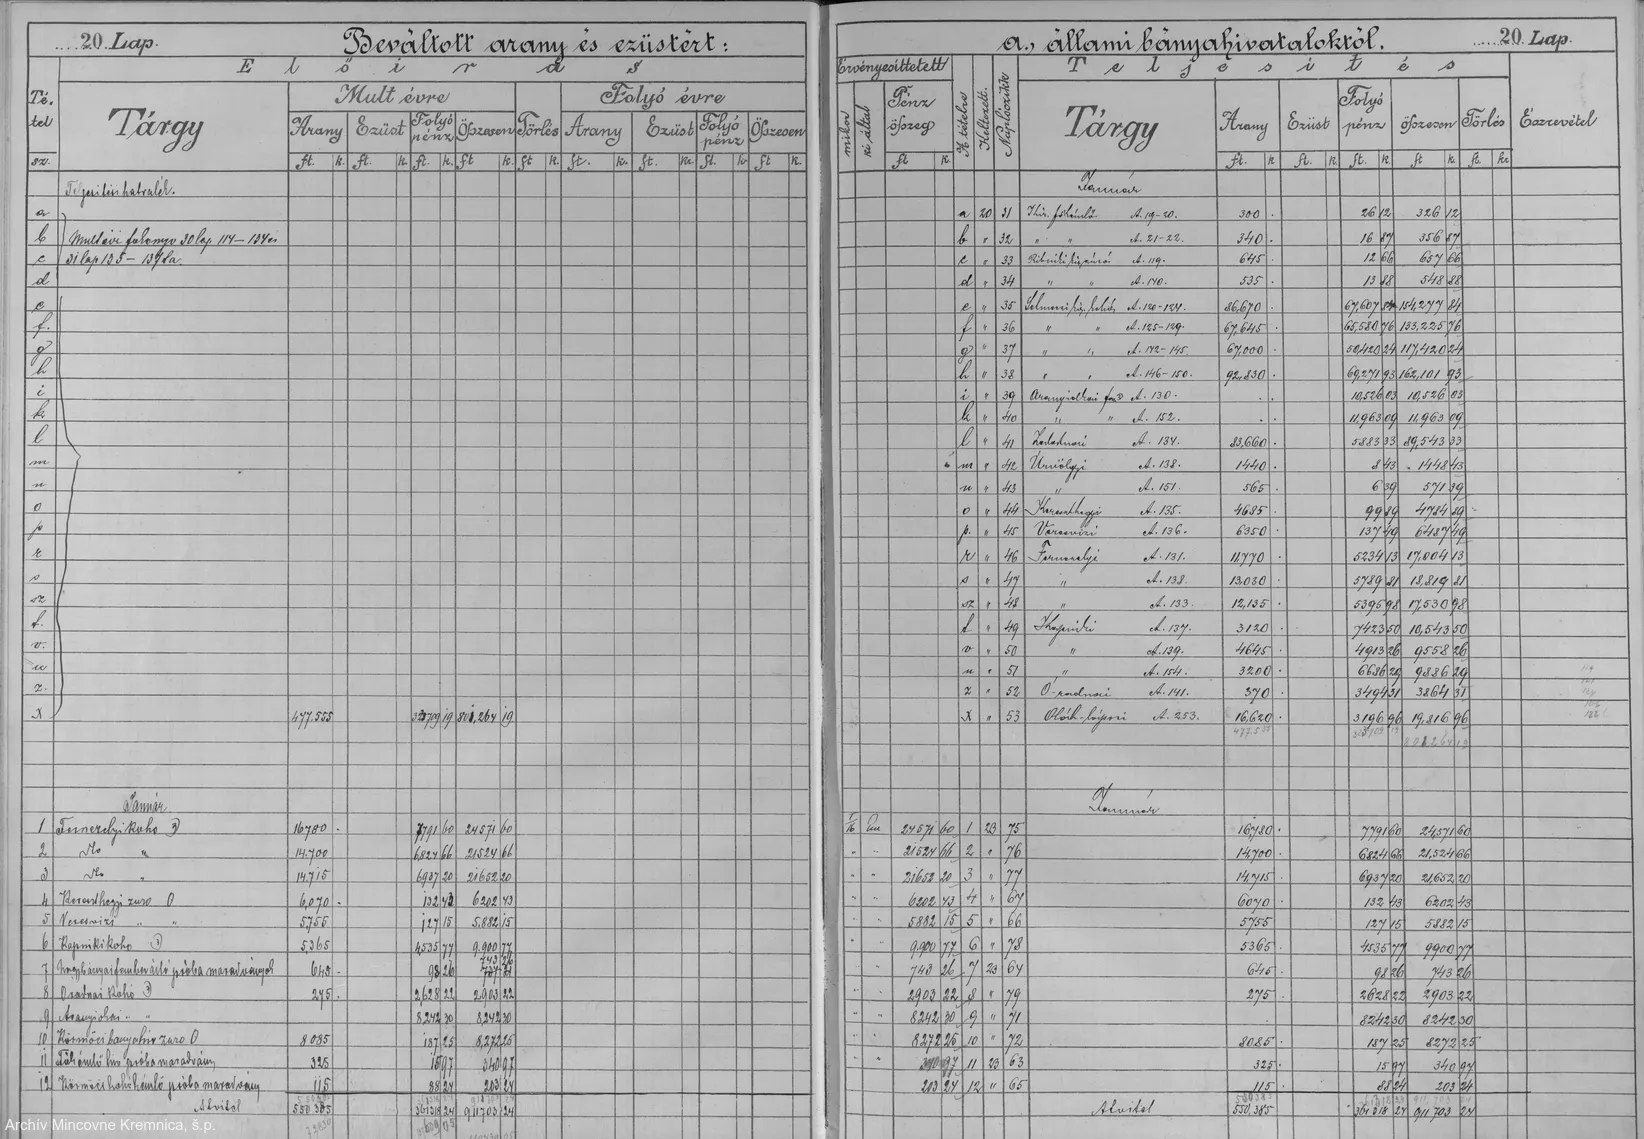 20. Lap.
Beváltott arany és ezüstért:
Előirás
Té-
tel
sz.
Tárgy
Mult évre
Folyó évre
Arany Ezüst Folyó pénz Összesen Törlés Arany Ezüst Folyó pénz Összesen
ft. k. ft. k. ft. k. ft k. ft k ft. kr. ft. kr. ft. kr ft k
a
b Multévi főkönyv 30 lap 114–134 és
c 31 lap 135–137 la.
d
e
f.
g
h
i
k
l
m
n
o
p
r
s
sz
t.
v.
u
z.
X 477.555 801,264 19
Január
1 Fernezelyi koho 16780 7791 60 24571 60
2 Dto " 14.700 6824 66 21524 66
3 Dto " 14.715 6937 20 21652 20
4 Kereszthegyi zuzo 6,070 132 43 6202 43
5 Veresvizi " " 5755 127 15 5.882 15
6 Kapniki koho 5365 4535 77 9.900 77
7 próba maradványok 645 98 26 743 26
8 Oradnai kohó 275 2,628 22 2903 22
9 Aranyidkai " " 8242 30 8242 30
10 Körmöci bányahiv zuzo 8085 187 25 8,272 25
11 próba maradvány 325 15 97 340 97
12 Körmöci próba maradvány 115 88 24 203 24
Átvitel 550.385 361318 24 911703 24
a., állami bányahivataloktól.
20 Lap.
Érvényesíttetett
Teljesítés
mikor
ki által
Pénz összeg
A tételre
Keltezett.
Naplószik
Tárgy
Arany Ezüst Folyó pénz összesen Törlés Észrevétel
ft k. ft. k ft. k. ft. k. ft k ft. kr
Január
a 20 31 A. 19–20. 300 26 12 326 12
b " 32 " " A. 21–22. 340 16 87 356 87
c " 33 A. 119. 645 12 66 657 66
d " 34 " " A. 140. 535 13 88 548 88
e " 35 A. 120–124. 86,670 67,607 84 154,277 84
f " 36 " " A. 125–129. 67,645 65,580 76 133,225 76
g " 37 " " A. 142–145. 67,000 50,420 24 117,420 24
h " 38 " " A. 146–150. 92,830 69,271 93 162,101 93
i " 39 Aranyidkai A. 130. 10,526 03 10,526 03
k " 40 " " A. 152. 11,963 09 11,963 09
l " 41 Zalatnai A. 134. 83,660 5883 33 89,543 33
m " 42 Urvölgyi A. 138. 1440 8 43 1448 43
n " 43 " A. 151. 565 6 39 571 39
o " 44 Kereszthegyi A. 135. 4685 99 89 4784 89
p. " 45 Veresvizi A. 136. 6350 137 49 6487 49
r " 46 Fernezelyi A. 131. 11,770 5234 13 17,004 13
s " 47 " A. 138. 13030 5789 81 18,819 81
sz " 48 " A. 133. 12,135 5395 98 17,530 98
t " 49 Kapniki A. 137. 3120 7423 50 10,543 50
v " 50 " A. 139. 4645 4913 26 9558 26
u " 51 " A. 154. 3200 6686 29 9886 29
z " 52 Ó-radnai A. 141. 370 3494 31 3864 31
X " 53 Oláh-láposi A. 253. 16,620 3196 96 19,816 96
Január
24571 60 1 23 75 16,780 7791 60 24,571 60
21524 66 2 " 76 14,700 6824 66 21,524 66
21652 20 3 " 77 14,715 6937 20 21,652 20
6202 43 4 " 67 6070 132 43 6202 43
5882 15 5 " 66 5755 127 15 5882 15
9,900 77 6 " 78 5365 4535 77 9900 77
743 26 7 23 64 645 98 26 743 26
2903 22 8 " 79 275 2628 22 2903 22
8242 30 9 " 71 8242 30 8242 30
8272 25 10 " 72 8085 187 25 8272 25
340 97 11 23 63 325 15 97 340 97
203 24 12 " 65 115 88 24 203 24
Átvitel 550,385 361318 24 911703 24
Archív Mincovne Kremnica, š.p.